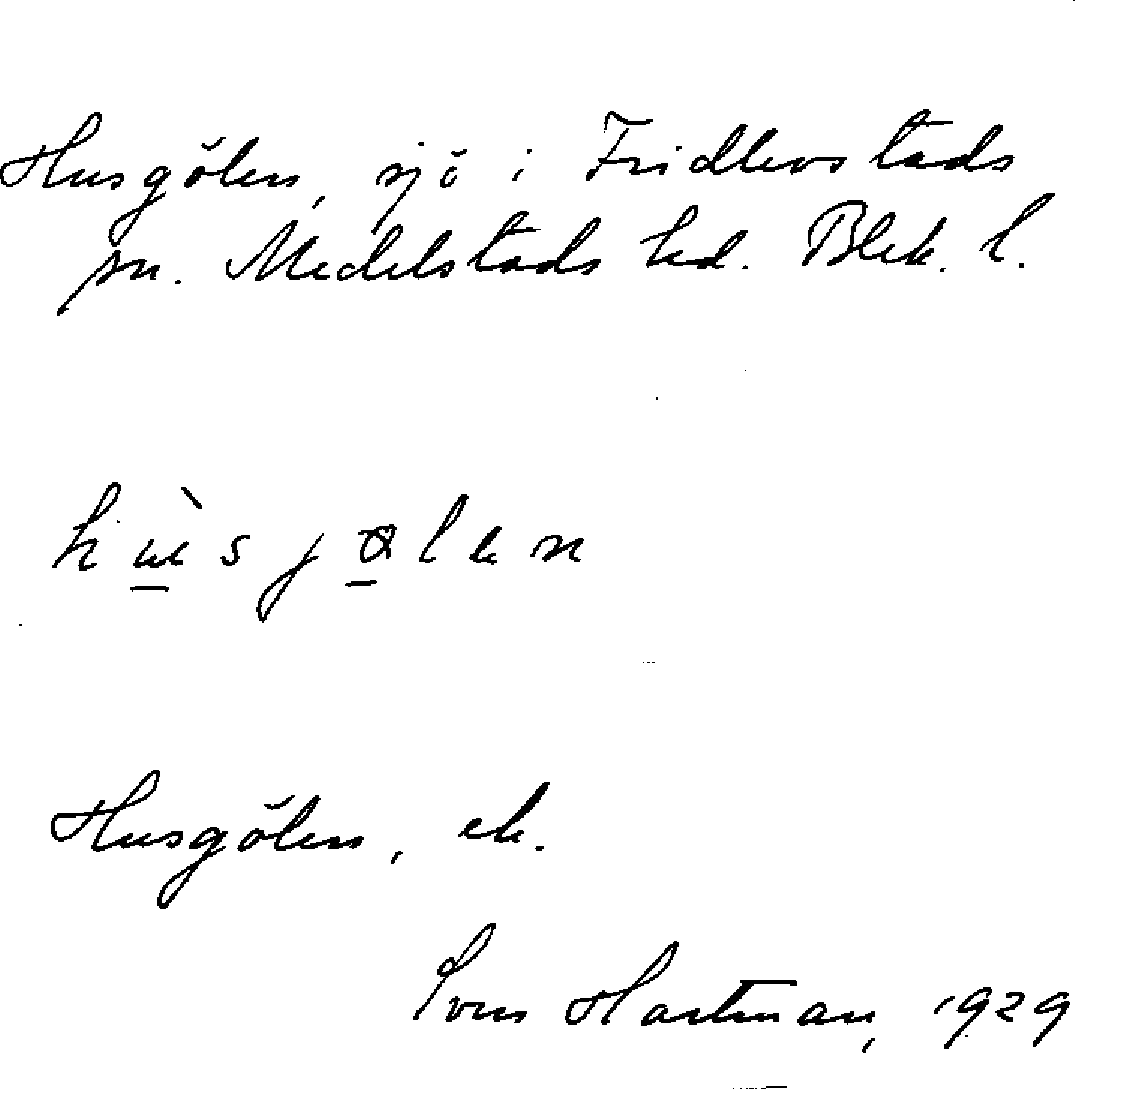 Husgölen, sjö i Fridlevstads
sn. Medelstads hd. Blek. l.
Husgölen, ek.
Sven Hartman, 1929